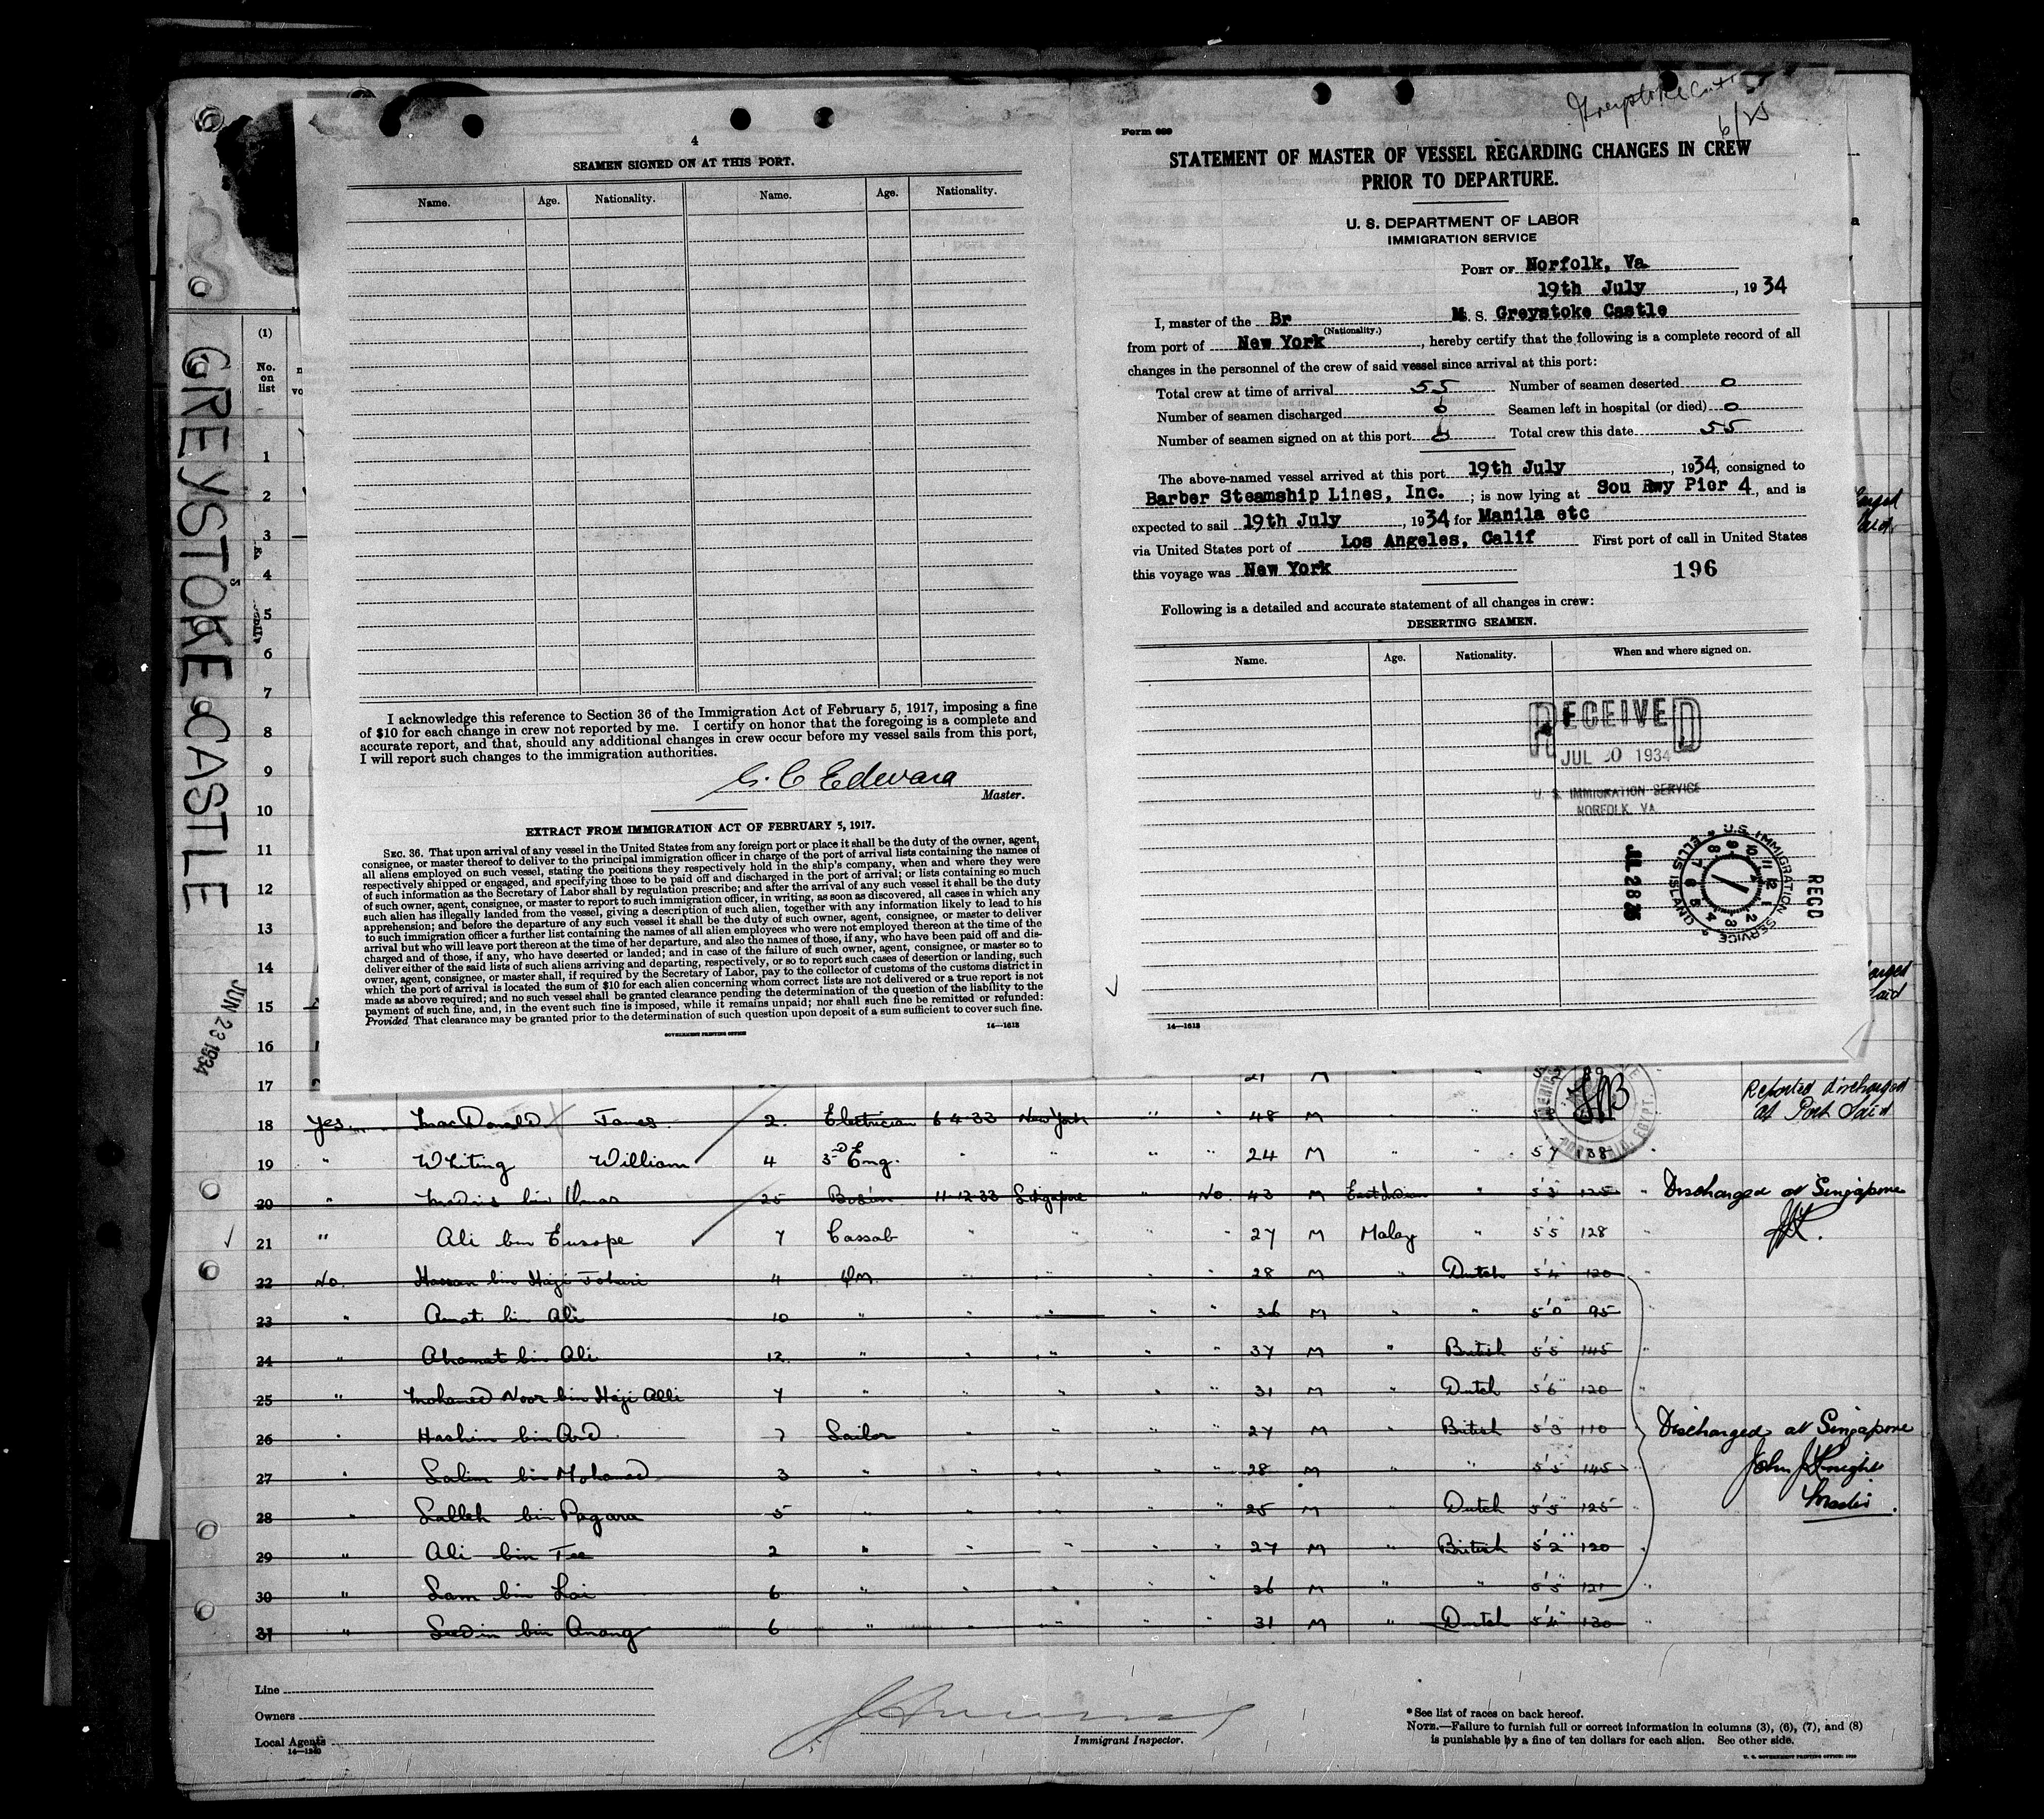 GREYSTOKE CASTLE
JUN 23 1934
4
SEAMEN SIGNED ON AT THIS PORT.
Name. Age. Nationality. Name. Age. Nationality.
I acknowledge this reference to Section 36 of the Immigration Act of February 5, 1917, imposing a fine
of $10 for each change in crew not reported by me. I certify on honor that the foregoing is a complete and
accurate report, and that, should any additional changes in crew occur before my vessel sails from this port,
I will report such changes to the immigration authorities.
Master.
EXTRACT FROM IMMIGRATION ACT OF FEBRUARY 5, 1917.
SEC. 36. That upon arrival of any vessel in the United States from any foreign port or place it shall be the duty of the owner, agent,
consignee, or master thereof to deliver to the principal immigration officer in charge of the port of arrival lists containing the names of
all aliens employed on such vessel, stating the positions they respectively hold in the ship's company, when and where they were
respectively shipped or engaged, and specifying those to be paid off and discharged in the port of arrival; or lists containing so much
of such information as the Secretary of Labor shall by regulation prescribe; and after the arrival of any such vessel it shall be the duty
of such owner, agent, consignee, or master to report to such immigration officer, in writing, as soon as discovered, all cases in which any
such alien has illegally landed from the vessel, giving a description of such alien, together with any information likely to lead to his
apprehension; and before the departure of any such vessel it shall be the duty of such owner, agent, consignee, or master to deliver
to such immigration officer a further list containing the names of all alien employees who were not employed thereon at the time of the
arrival but who will leave port thereon at the time of her departure, and also the names of those, if any, who have been paid off and dis-
charged and of those, if any, who have deserted or landed; and in case of the failure of such owner, agent, consignee, or master so to
deliver either of the said lists of such aliens arriving and departing, respectively, or so to report such cases of desertion or landing, such
owner, agent, consignee, or master shall, if required by the Secretary of Labor, pay to the collector of customs of the customs district in
which the port of arrival is located the sum of $10 for each alien concerning whom correct lists are not delivered or a true report is not
made as above required; and no such vessel shall be granted clearance pending the determination of the question of the liability to the
payment of such fine, and, in the event such fine is imposed, while it remains unpaid; nor shall such fine be remitted or refunded:
Provided That clearance may be granted prior to the determination of such question upon deposit of a sum sufficient to cover such fine.
GOVERNMENT PRINTING OFFICE 14—1613
Greystoke Castle
6/25
Form 689
STATEMENT OF MASTER OF VESSEL REGARDING CHANGES IN CREW
PRIOR TO DEPARTURE.
U. S. DEPARTMENT OF LABOR
IMMIGRATION SERVICE
PORT OF Norfolk, Va
19th July, 1934
I, master of the Br M. S. Greystoke Castle
(Nationality.)
from port of New York, hereby certify that the following is a complete record of all
changes in the personnel of the crew of said vessel since arrival at this port:
Total crew at time of arrival 55 Number of seamen deserted 0
Number of seamen discharged 0 Seamen left in hospital (or died) 0
Number of seamen signed on at this port 0 Total crew this date 55
The above-named vessel arrived at this port 19th July, 1934, consigned to
Barber Steamship Lines, Inc. ; is now lying at Sou Rwy Pier 4, and is
expected to sail 19th July, 1934 for Manila etc
via United States port of Los Angeles, Calif First port of call in United States
this voyage was New York 196
Following is a detailed and accurate statement of all changes in crew:
DESERTING SEAMEN.
Name. Age. Nationality. When and where signed on.
RECEIVED
JUL 20 1934
U. S. IMMIGRATION SERVICE
NORFOLK, VA.
U.S. IMMIGRATION SERVICE ELLIS ISLAND
RECD
14—1613
(1)
No. on list
1
2
3
4
5
6
7
8
9
10
11
12
13
14
15
16
17 21 M 5 2
Reported discharged
at Port Said
18 Yes MacDonald James 2 Electrician 6-4-33 New York " " 48 M " "
19 " Whiting William 4 3rd Eng. " " " " 24 M " " 5 7 138
20 " bin 25 Bos'un 11-12-33 Singapore " No. 43 M East Indian " 5'3" 125 " Discharged at Singapore
21 " Ali bin Eusope 7 Cassab " " " " 27 M Malay " 5'5 128 "
22 No. Hassan bin Haji Johari 4 QM. " " " " 28 M " Dutch 5'4" 120 "
23 " Amat bin Ali 10 " " " " " 36 M " " 5'0" 95 "
24 " Ahamat bin Ali 12 " " " " " 37 M " British 5'5" 145 "
25 " Mohamed Noor bin Haji Alli 7 " " " " " 31 M " Dutch 5'6" 120 "
26 " Hashim bin 7 Sailor " " " " 27 M " British 5'3" 110 Discharged at Singapore
27 " Salim bin Mohamed 3 " " " " " 28 M " " 5'5" 145 John J Knight
28 " Salleh bin Pagara 5 " " " " " 25 M " Dutch 5'5" 125 " Master.
29 " Ali bin Tee 2 " " " " " 27 M " British 5'2" 120 "
30 " Sam bin Lai 6 " " " " " 36 M " " 5'5" 121 "
31 " bin Anang 6 " " " " " 31 M " Dutch 5'4" 130 "
Line
Owners
Local Agents
14—1240
Immigrant Inspector.
* See list of races on back hereof.
NOTE.—Failure to furnish full or correct information in columns (3), (6), (7), and (8)
is punishable by a fine of ten dollars for each alien. See other side.